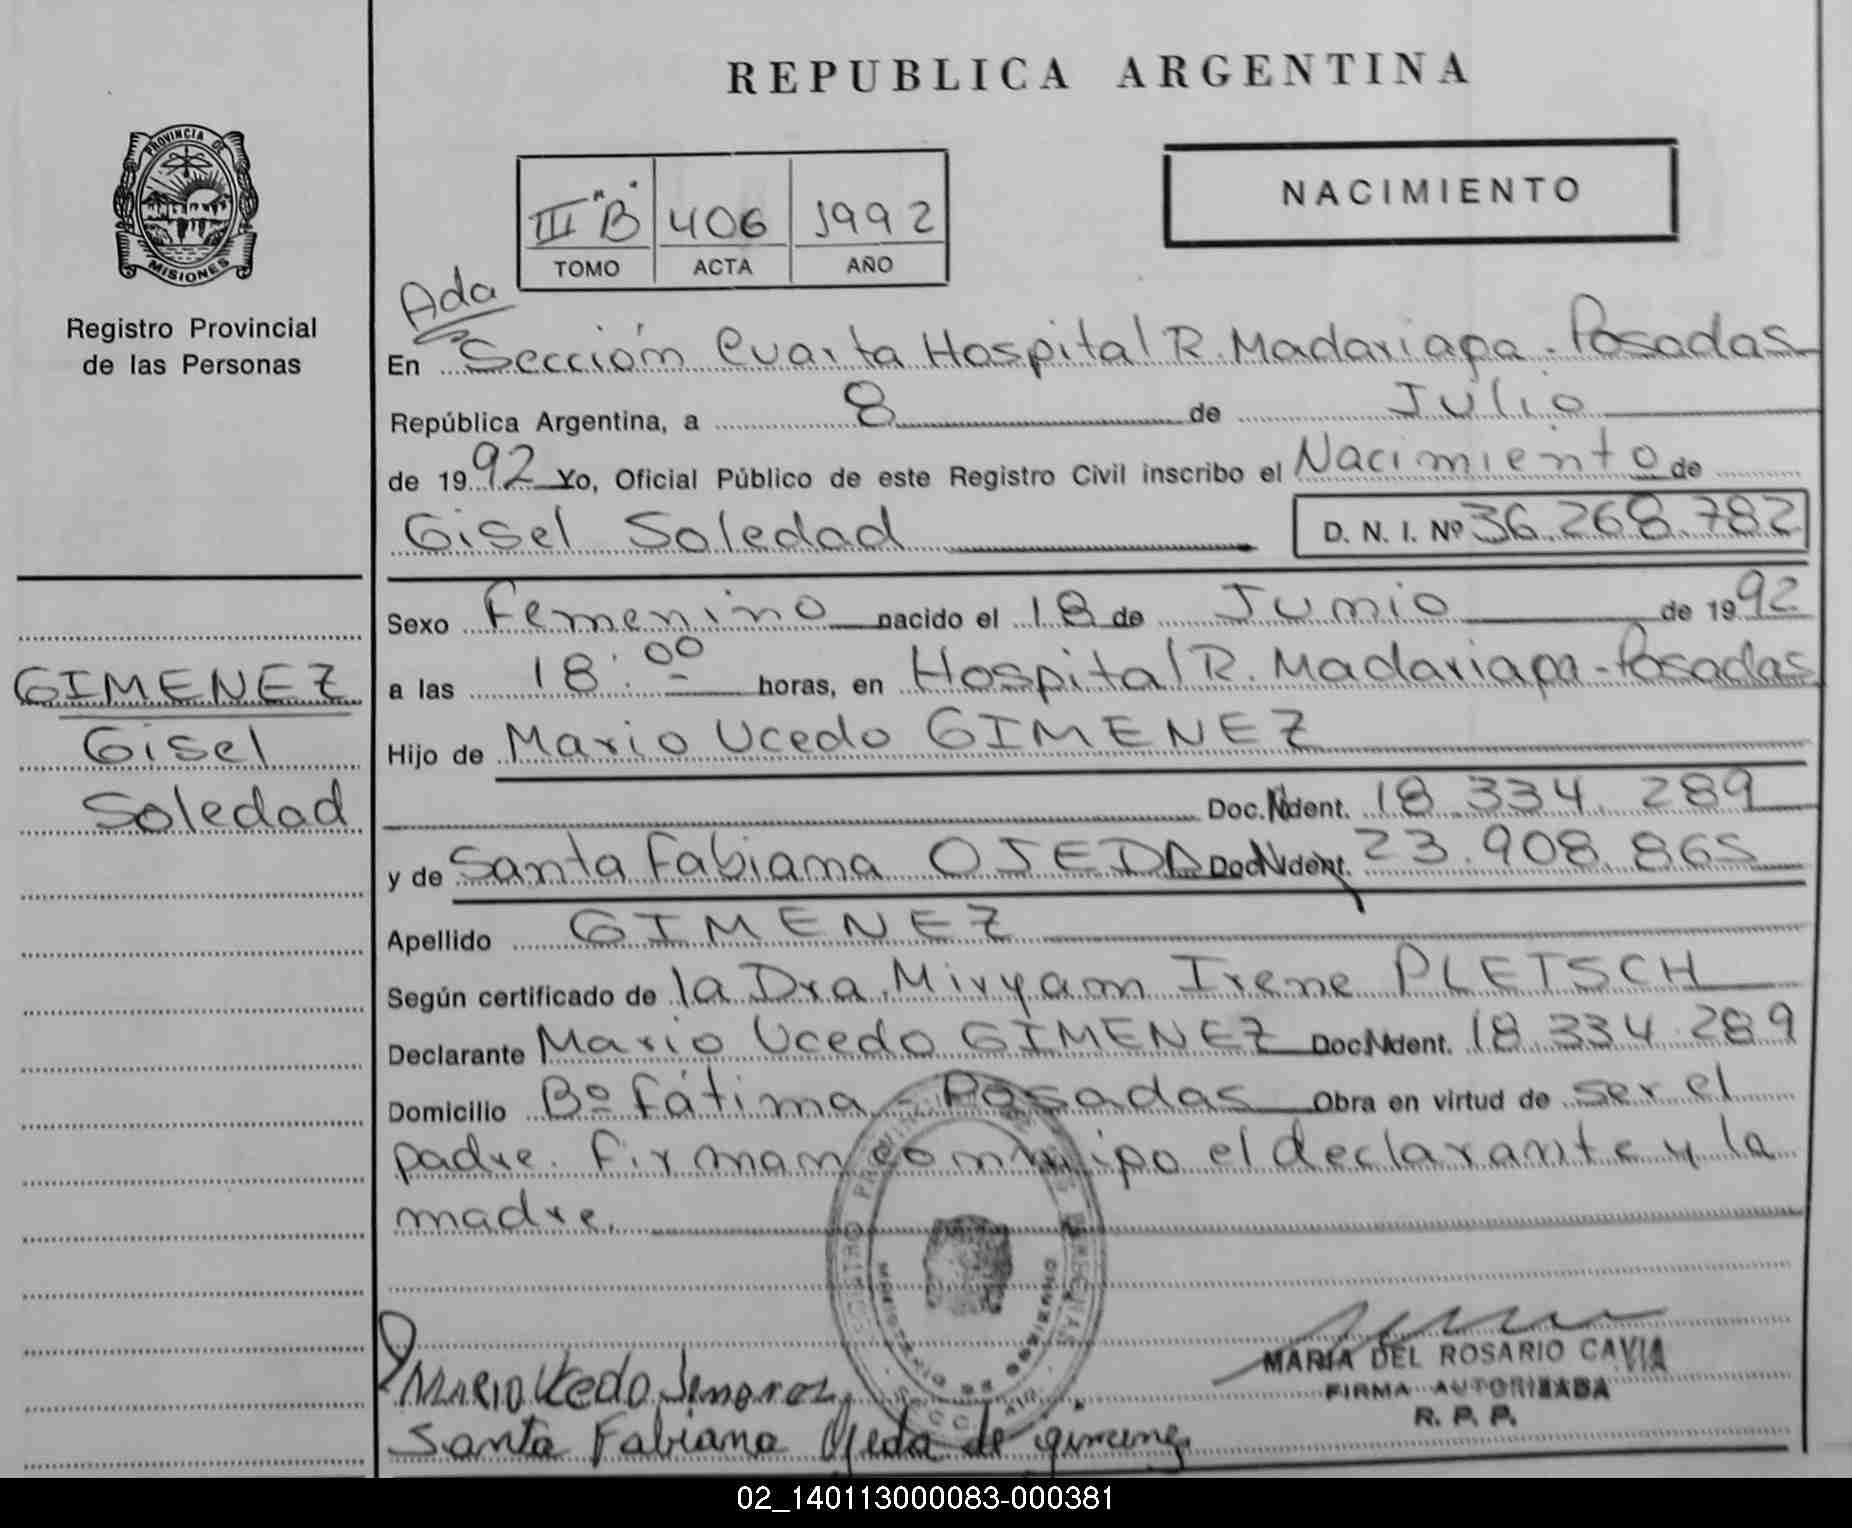 REPUBLICA ARGENTINA
PROVINCIA DE
MISIONES
Registro Provincial
de las Personas
III "B" 406 1992
TOMO ACTA AÑO
NACIMIENTO
Ada
En Sección Cuarta Hospital R. Madariaga - Posadas
República Argentina, a 8 de Julio
de 1992 Yo, Oficial Público de este Registro Civil inscribo el Nacimiento de
Gisel Soledad D. N. I. Nº 36.268.782
Sexo Femenino nacido el 18 de Junio de 1992
a las 18:00 horas, en Hospital R. Madariaga - Posadas
Hijo de Mario Ucedo GIMENEZ
Doc. Ident. 18.334.289
y de Santa Fabiana OJEDA Doc. Ident. 23.908.865
Apellido GIMENEZ
Según certificado de la Dra. Miryam Irene PLETSCH
Declarante Mario Ucedo GIMENEZ Doc. Ident. 18.334.289
Domicilio Bº Fátima - Posadas Obra en virtud de ser el
padre. Firman conmigo el declarante y la
madre.
GIMENEZ
Gisel
Soledad
MARIO Ucedo Jimenez
Santa Fabiana Ojeda de gimenez
MARIA DEL ROSARIO CAVIA
FIRMA AUTORIZADA
R. P. P.
02_140113000083-000381